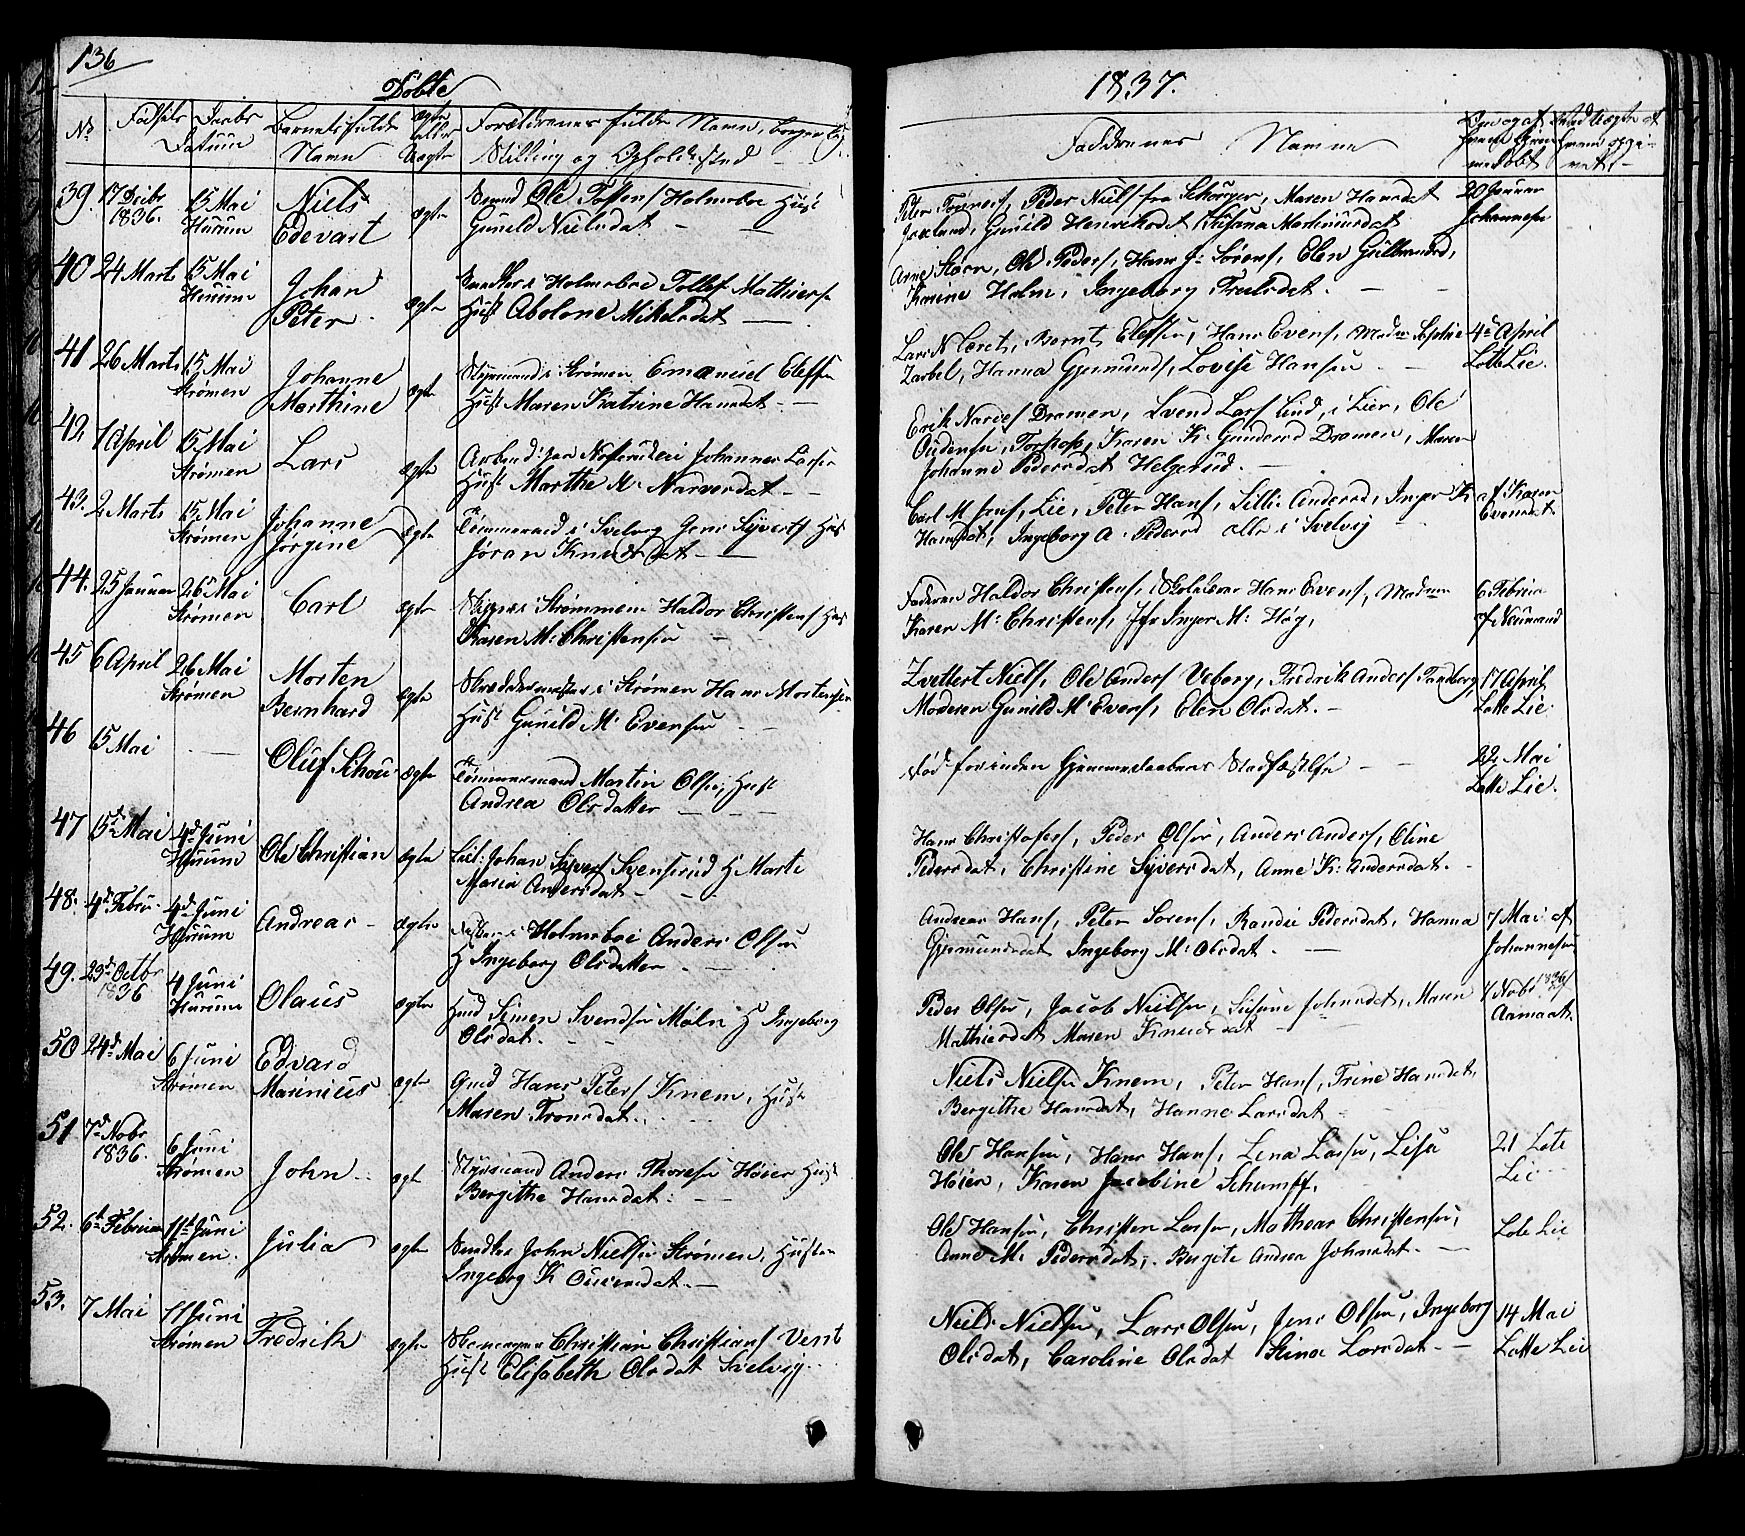 136
Döbte
1837.
No Fødsels Daabs Datum Barnets fulde Navn ægte eller Uægte Forældrenes fulde Navn, borgerlig Stilling og Opholdssted
Faddrenes Navne
39. 17 Decbr 1836. 15 Mai Hurum Niels Edevart ægte Ole Holmsboe Hust
Gunild Nielsdat
Peder Niels fra Maren Hansdat
Gunild Henriksdat, Susana Martinusdat
20 Januar Johannesen
40 24 Marts 15 Mai Hurum Johan Peter ægte i Holmsboe Tollef Mathiese
Hust Abolone Mikelsdat
Arne Steen, Ole Peders, Hans Sørens, Elen Gulbransd,
Karine Holm, Ingeborg Trulsdat.
41 26 Marts 15 Mai Strømen Johanne Marthine ægte Styrmand i Strømen Emanuel Elefsen
Hust Maren Katrine Hansdat.
Lars N. Bernt Elefsen, Hans Evens, Madm Sophie
Zarbel, Hanna Gjermunds, Lovise Hansen
4de April Lotte Lie.
42, 1 April 15 Mai Strømen Lars ægte Johannes Larsen
Hust Marthe M. Narvesdat
Erik Narves Dramen, Svend Lars Lind, i Lier, Ole
Oudensen, Karen K. Gundersd Dramen, Maren
Johanne Pedersdat Helgerud.
43. 2 Marts 15 Mai Strømen Johanne Jørgine ægte Tømmermd i Svelvig Jens Syverts Hus
Jøran Knudsdat
Carl M. Lie, Peter Hans, Sillie Andersd, Inger K
Hansdat, Ingeborg A. Pedersd alle i Svelvig
af Karen Evensdat
44. 25 Januar 26 Mai Strømen Carl ægte Skipper i Strømmen Haldor Christens Hus
Karen M. Christensen
Faderen Haldor Christens, Skolelærer Hans Evens, Madam
Karen M. Christens, Jfr Inger M. Høg,
6 Februar af Neumand
45 6 April 26 Mai Strømen Morten Bernhard ægte Skreddermester i Strømen Hans Mortensen
Hust Gunild M. Evensen
Zvettert Niels, Ole Anders Veborg, Fredrik Anders Tandberg,
Moderen Gunild M. Evens, Elen Olsdat.
17 April Lotte Lie.
46 15 Mai Oluf Schou ægte Tømmermand Martin Olsen, Hust
Andrea Olsdatter
Død forinden Hjemmedaabens Stadfæstelse
22 Mai Lotte Lie.
47 15de Mai 4de Juni Hurum Ole Christian ægte Johan Sivers Svensrud H Marte
Maria Andersdat
Hans Christofers, Peder Olsen, Anders Anders, Oline
Pedersdat, Christine Syversdat, Anne K. Andersdat.
48. 4de Febru. 4de Juni Hurum Andreas ægte Holmsboe Anders Olsen
H Ingeborg Olsdatter
Andreas Hans, Peter Sørens, Randie Pedersdat, Hanna
Gjermundsdat Ingeborg M. Olsdat.
7 Mai af Johannesen
49. 29de Octbr 1836 4 Juni Hurum Olaus ægte Simen Svendsen Møln H Ingeborg
Olsdat.
Peder Olsen, Jacob Nielsen, Susane Johnsdat, Maren
Mathisdat Maren Knudsdat
Nobr 1836 Aamaat.
50 24de Mai 6 Juni Strømen Edvard Marinius ægte Gmd Hans Peters Knem, Hust
Maren Tronsdat.
Niels Nielsen Knem, Peter Hans, Trine Hansdat,
Bergithe Hansdat, Hanne Larsdat
51 7de Nobr 1836. 6 Juni Strømen John ægte Styrmand Anders Thoresen Høier Hust
Bergithe Hansdat:
Ole Hansen, Hans Hans, Lena Larsen, Lise
Høien, Karen Jacobine Schumff.
21 Lote Lie
52. 6te Februar 11te Juni Strømen. Julia ægte John Nielsen Strømen, Hustru
Ingeborg K
Ole Hansen, Christen Larsen, Mathear Christensen,
Anne M. Pedersdat, Bergite Andrea Johnsdat.
Lote Lie
53. 7 Mai 11 Juni Strømen Fredrik ægte Christian Christians Vent
Hust Elisabeth Olsdat Svelvig.
Niels Nielsen, Lars Olsen, Jens Olsen, Ingeborg
Olsdat, Caroline Olsdat Stina Larsdat.
14 Mai Lotte Lie